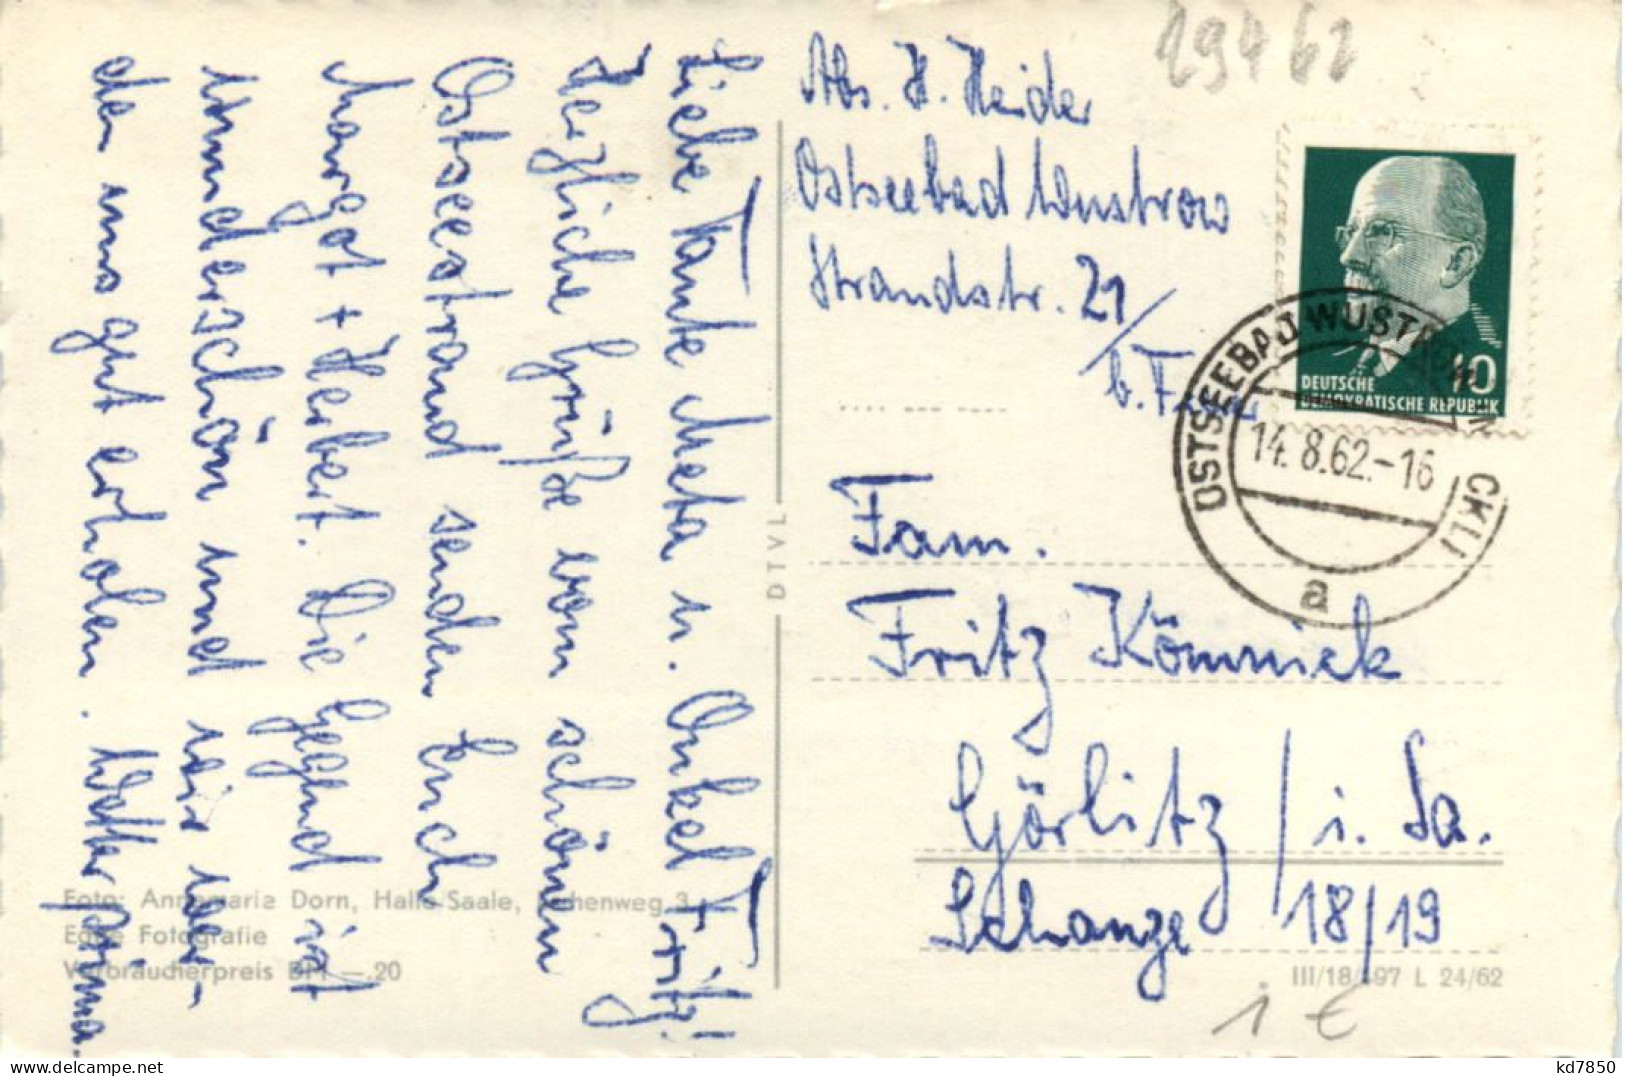 29462
Abs. H. Heider
Ostseebad Wustrow
Strandstr. 21/
b.
DEUTSCHE
DEMOKRATISCHE REPUBLIK
10
OSTSEEBAD WUSTROW
14.8.62.-16
a
Liebe Tante Meta u. Onkel Fritz!
Herzliche Grüße vom schönen
Ostseestrand senden Euch
Margot + Herbert. Die Gegend ist
wunderschön und wir wer-
den uns gut erholen. Wetter prima.
DTVL
Fam.
Fritz Könnick
Görlitz / i. Sa.
Schanze 18/19
Foto: Annemarie Dorn, Halle-Saale, 3
Echte Fotografie
Verbraucherpreis DM —.20
III/18/197 L 24/62
1 €
kd7850